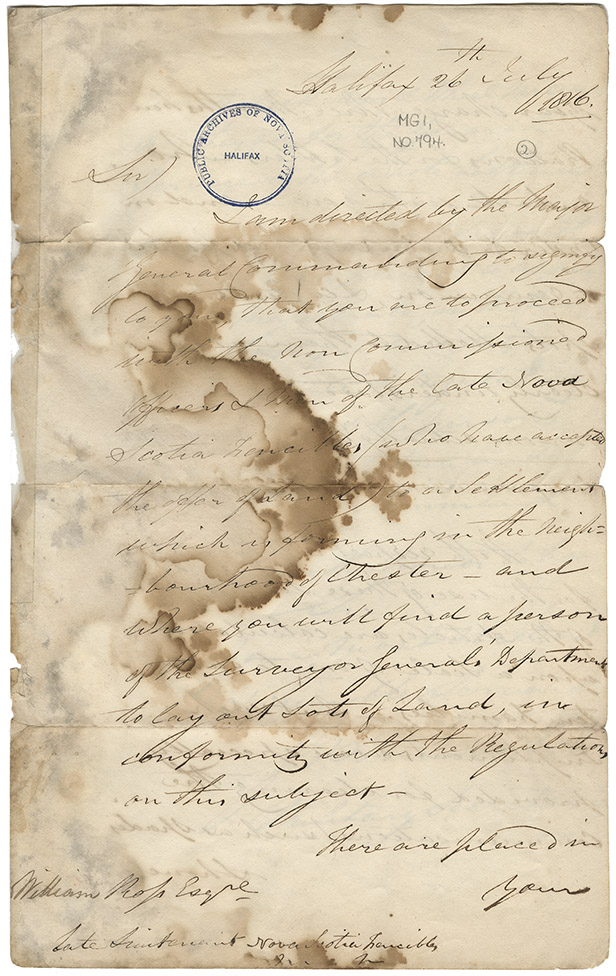 Halifax 26th July
1816.
PUBLIC ARCHIVES OF NOVA SCOTIA
HALIFAX
MG1,
NO.794.
2
Sir)
I am directed by the Major
General Commanding to signify
to you, that you are to proceed
with the Non Commissioned
Officers & Men of the late Nova
Scotia Fencibles (who have accepted
the offer of Land) to a Settlement
which is forming in the neigh=
-bourhood of Chester - and
where you will find a person
of the Surveyor General's Department
to lay out Lots of Land, in
conformity with the Regulations
on this subject -
There are placed in
your
William Ross Esqre
late Lieutenant Nova Scotia Fencibles